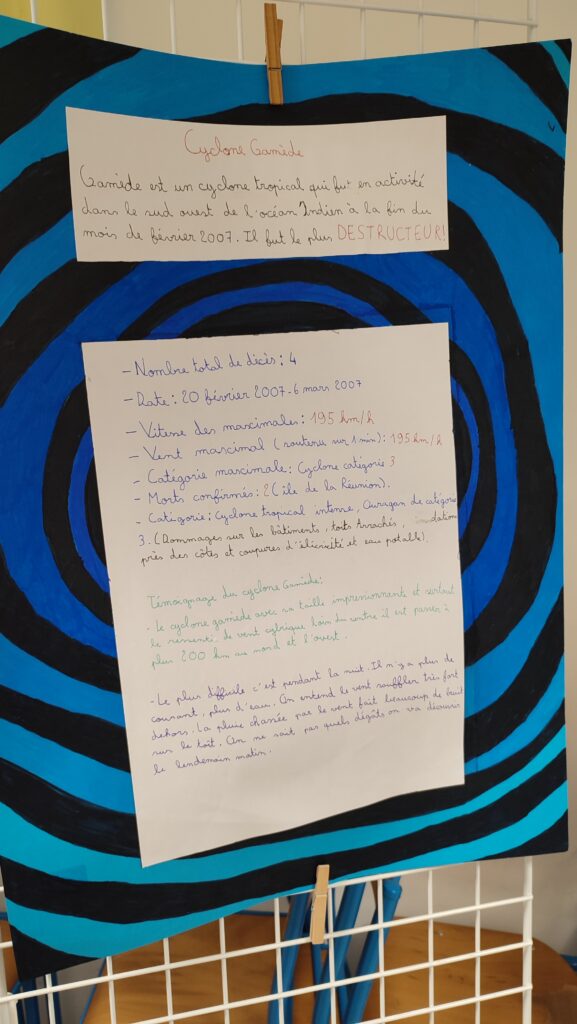 Cyclone Gamède
Gamède est un cyclone tropical qui fut en activité
dans le sud ouest de l'océan Indien à la fin du
mois de février 2007. Il fut le plus DESTRUCTEUR!
- Nombre total de décès : 4
- Date : 20 février 2007 - 6 mars 2007
- Vitesse des maximales : 195 km/h
- Vent maximal (soutenu sur 1 min) : 195 km/h
- Catégorie maximale : Cyclone catégorie 3
- Morts confirmés : 2 (île de la Réunion).
- Catégorie : Cyclone tropical intense, Ouragan de catégorie
3. (Dommages sur les bâtiments, toits Arrachés,
près des côtes et coupures d'élicricité et eau potable).
Témoignage du cyclone Gamède :
- Le cyclone gamède avec sa taille impressionnante et surtout
le ressenti de vent loin du centre il est passer à
plus 200 km au nord et l'ouest.
- Le plus difficile c'est pendant la nuit. Il n'y a plus de
courant, plus d'eau. On entend le vent souffler très fort
dehors. La pluie chassée par le vent fait beaucoup de bruit
sur le toit. On ne sait pas quels dégâts on va découvrir
le lendemain matin.